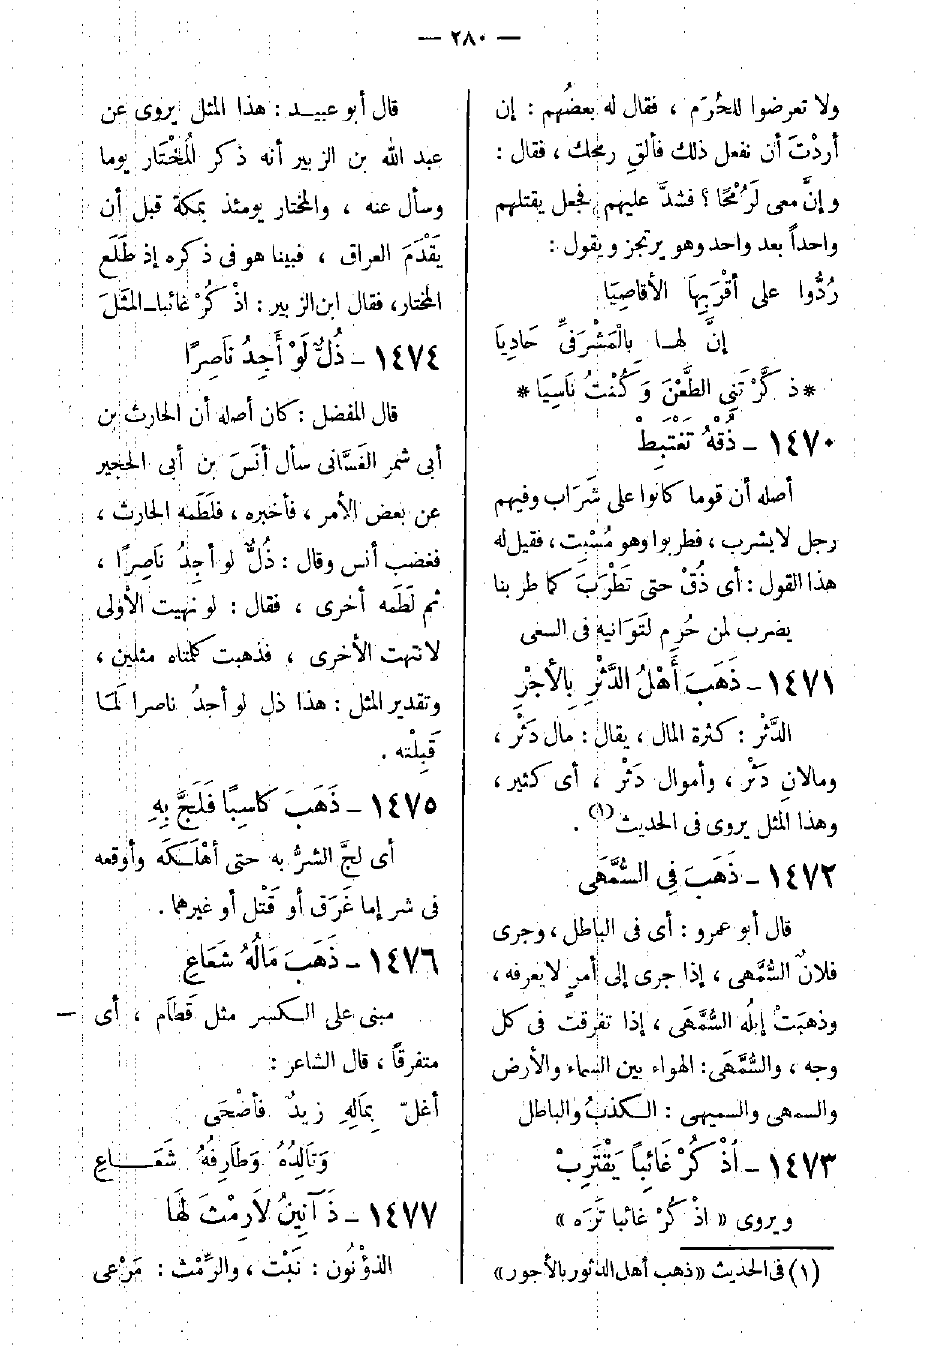 — ٢٨٠ —
ولا تعرضوا للحُرَم ، فقال له بعضُهم : إن
أردْتَ أن نفعل ذلك فألقِ رمحك ، فقال :
وإنَّ معى لَرُمْحًا ؟ فشدَّ عليهم فجعل يقتلهم
واحداً بعد واحد وهو يرتجز ويقول :
رُدُّوا على أقْرَبِهَا الأقاصِيَا
إنَّ لهـا بِالْمَشْرَفىِّ حَادِيَا
* ذكَّرْتَنِى الطَّعْنَ وَكُنْتُ نَاسِيَا *
١٤٧٠ – ذُقْهُ تَغْتَبِطْ
أصله أن قوما كانوا على شَرَاب وفيهم
رجل لا يشرب ، فطربوا وهو مُسْبِت ، فقيل له
هذا القول : أى ذُقْ حتى تَطْرَبَ كما طربنا
يضرب لمن حُرِم لتَوَانيه فى السعى
١٤٧١ – ذَهَبَ أَهْلُ الدَّثْرِ بِالأجْرِ
الدَّثْر : كثرة المال ، يقال : مال دَثْر ،
ومالانِ دَثْر ، وأموال دَثْر ، أى كثير ،
وهذا المثل يروى فى الحديث (١) .
١٤٧٢ – ذَهَبَ فِى السُّمَّهَى
قال أبو عمرو : أى فى الباطل ، وجرى
فلانٌ السُّمَّهى ، إذا جرى إلى أمرٍ لا يعرفه ،
وذهبَتْ إبلُه السُّمَّهَى ، إذا تفرقت فى كل
وجه ، والسُّمَّهَى : الهواء بين السماء والأرض
والسمهى والسميهى : الـكذبُ والباطل
١٤٧٣ – اُذْكُرْ غَائِباً يَقْتَرِبْ
ويروى « اذكُرْ غائبا تَرَه »
(١) فى الحديث «ذهب أهل الدثور بالأجور»
قال أبو عبيـد : هذا المثل يروى عن
عبد الله بن الزبير أنه ذكر الْمُخْتَار يوما
وسأل عنه ، والمختار يومئذ بمكة قبل أن
يَقْدَمَ العراق ، فبينا هو فى ذكره إذ طَلَع
المختار، فقال ابن الزبير : اذْكُرْ غائبا ـ المَثَلَ
١٤٧٤ – ذُلٌّ لَوْ أَجِدُ نَاصِرًا
قال المفضل : كان أصله أن الحارث بن
أبى شمر الغَسَّانى سأل أنَسَ بن أبى الحجير
عن بعض الأمر ، فأخبره ، فلَطَمه الحارث ،
فغضب أنس وقال : ذُلٌّ لو أجِدُ نَاصِرًا ،
ثم لَطَمه أخرى ، فقال : لو نهيت الأولى
لانتهت الأخرى ، فذهبت كلمتاه مثلين ،
وتقدير المثل : هذا ذل لو أجدُ ناصرا لَمَـا
قَبِلْته .
١٤٧٥ – ذَهَبَ كَاسِبًا فَلَجَّ بِهِ
أى لجَّ الشرُّ به حتى أهْلَـكَه وأوقعه
فى شر إما غَرَق أو قَتْل أو غيرهما .
١٤٧٦ – ذَهَبَ مَالُهُ شَعَاعِ
مبنى على الـكسر مثل قَطَامِ ، أى
متفرقاً ، قال الشاعر :
أغلّ بِمَالِهِ زيدٌ فأضْحَى
وَتَالِدُهُ وَطَارِفُهُ شَعَـــاعِ
١٤٧٧ – ذَآنِينُ لاَرِمْثَ لَهَا
الذؤْنُون : نَبْت ، والرِّمْث : مَرْعى